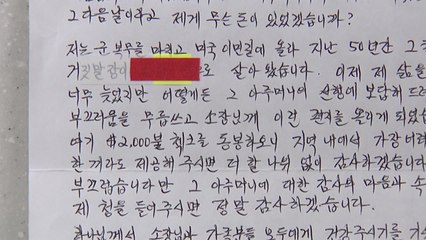 그 다음날이라고 제게 무슨 돈이 있었겠습니까?
저는 군 복무를 마치고 미국 이민길에 올라 지난 50년간 그
거짓말같이 으로 살아왔습니다. 이제 제 삶을
너무 늦었지만 어떻게든 그 아주머니의 선행에 보답해 드려
부끄러움을 무릅쓰고 소장님께 이런 편지를 올리게 되었습
여기 $2,000불 체크를 동봉하오니 지역 내에서 가장 어려
한 끼라도 제공해 주시면 더 할 나위 없이 감사하겠습니다
부끄럽습니다만 그 아주머니에 대한 감사의 마음과 속
제 청을 들어주시면 정말 감사하겠습니다.
하나님께서 소장님과 가족분들 모두에게